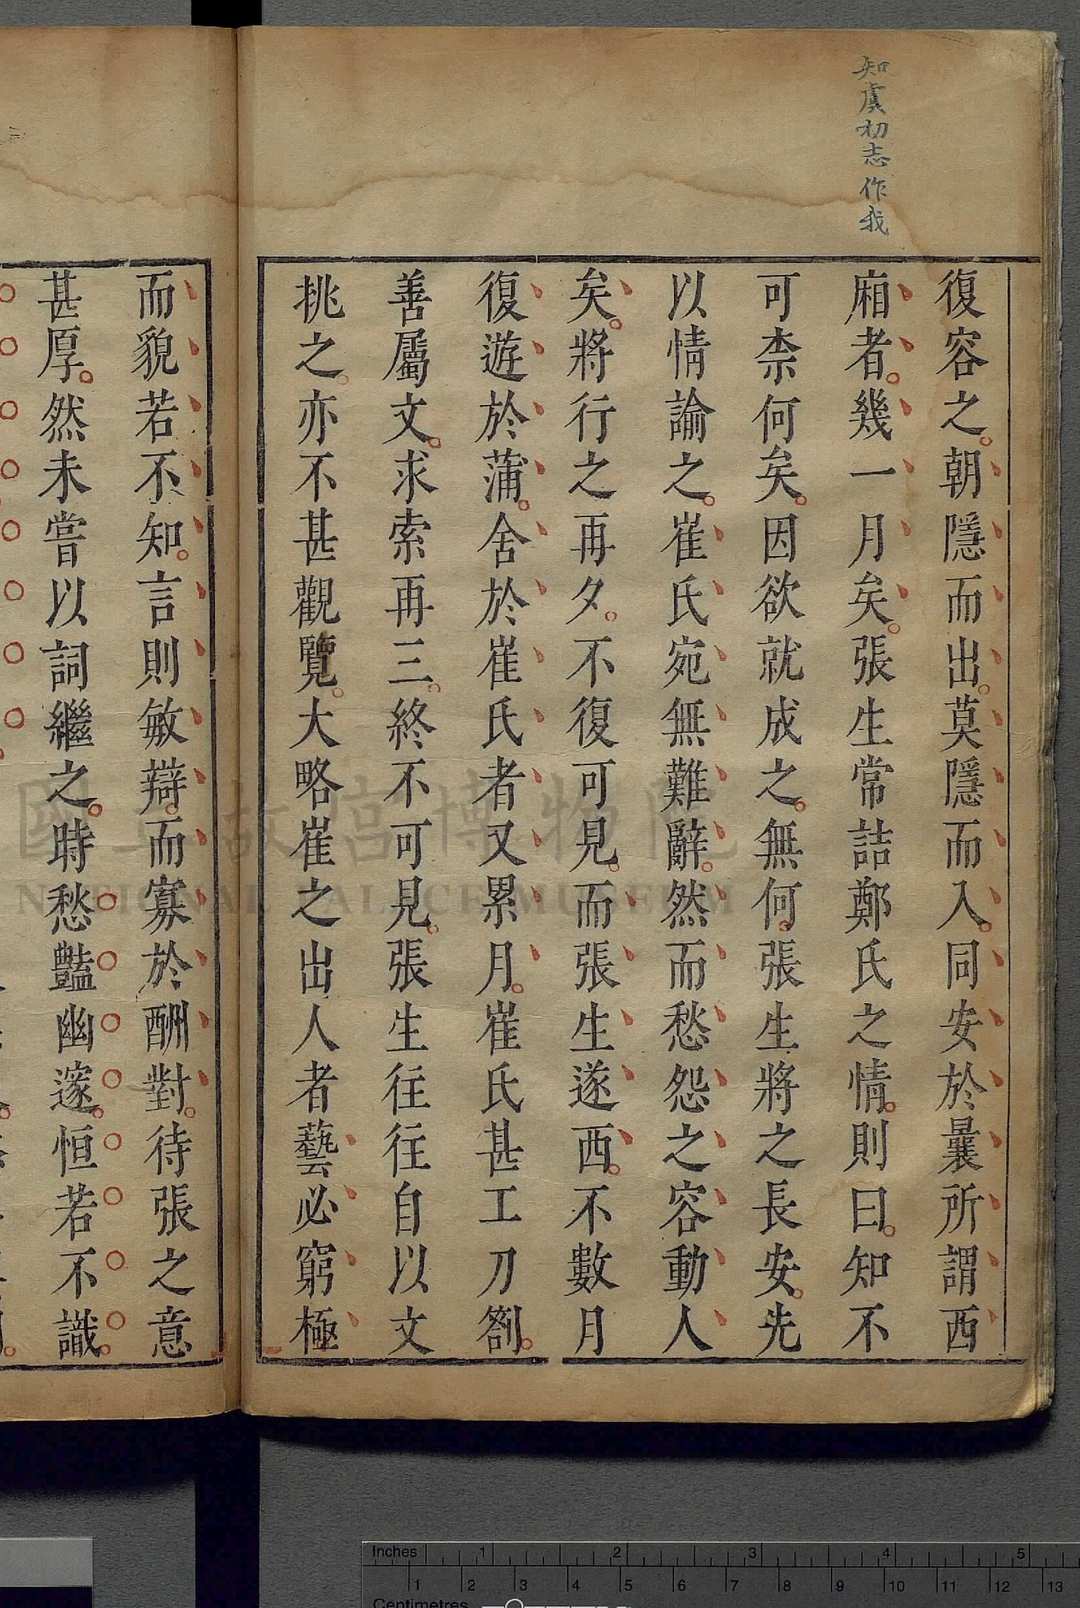 知虞初志作我
復容之朝隱而出莫隱而入同安於曩所謂西
廂者幾一月矣張生常詰鄭氏之情則曰知不
可柰何矣因欲就成之無何張生將之長安先
以情諭之崔氏宛無難辭然而愁怨之容動人
矣將行之再夕不復可見而張生遂西不數月
復遊於蒲舍於崔氏者又累月崔氏甚工刀劄
善屬文求索再三終不可見張生往往自以文
挑之亦不甚觀覽大略崔之出人者藝必窮極
而貌若不知言則敏辯而寡於酬對待張之意
甚厚然未嘗以詞繼之時愁豔幽邃恒若不識
國立故宮博物院
NATIONAL PALACE MUSEUM
Inches 1 2 3 4 5
1 2 3 4 5 6 7 8 9 10 11 12 13
Centimetres